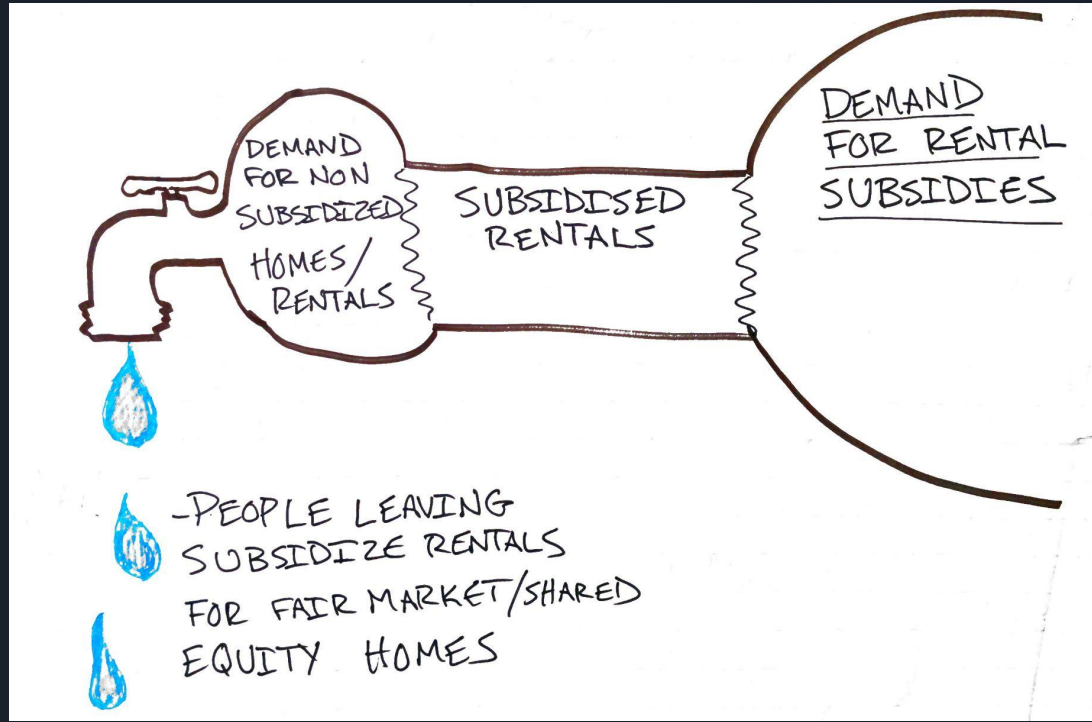 DEMAND
FOR NON
SUBSIDIZED
HOMES/
RENTALS
SUBSIDISED
RENTALS
DEMAND
FOR RENTAL
SUBSIDIES
-PEOPLE LEAVING
SUBSIDIZE RENTALS
FOR FAIR MARKET/SHARED
EQUITY HOMES